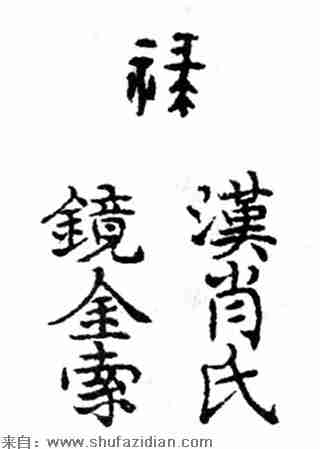 祿
漢肖氏
鏡金索
来自：www.shufazidian.com